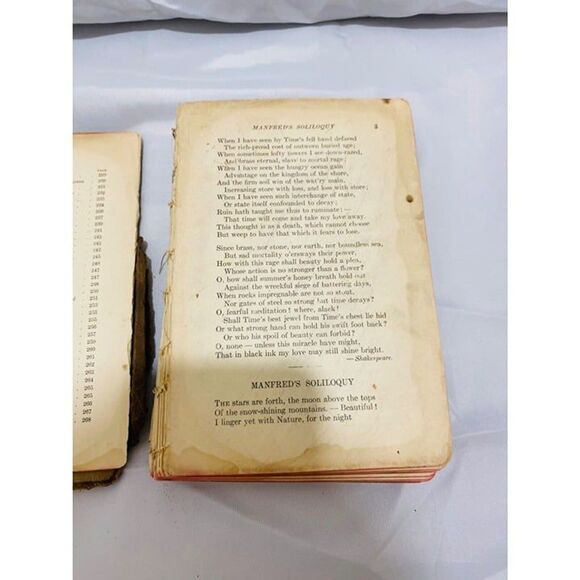 PAGE
229
229
231
234
235
236
237
238
239
240
241
243
247
247
248
251
253
255
257
258
260
261
263
264
265
266
267
268
MANFRED'S SOLILOQUY 3
When I have seen by Time's fell hand defaced
The rich-proud cost of outworn buried age;
When sometimes lofty towers I see down-razed,
And brass eternal, slave to mortal rage;
When I have seen the hungry ocean gain
Advantage on the kingdom of the shore,
And the firm soil win of the wat'ry main,
Increasing store with loss, and loss with store;
When I have seen such interchange of state,
Or state itself confounded to decay;
Ruin hath taught me thus to ruminate; —
That time will come and take my love away.
This thought is as a death, which cannot choose
But weep to have that which it fears to lose.
Since brass, nor stone, nor earth, nor boundless sea,
But sad mortality o'ersways their power,
How with this rage shall beauty hold a plea,
Whose action is no stronger than a flower?
O, how shall summer's honey breath hold out
Against the wreckful siege of battering days,
When rocks impregnable are not so stout,
Nor gates of steel so strong but time decays?
O, fearful meditation! where, alack!
Shall Time's best jewel from Time's chest lie hid
Or what strong hand can hold his swift foot back?
Or who his spoil of beauty can forbid?
O, none — unless this miracle have might,
That in black ink my love may still shine bright.
— Shakespeare.
MANFRED'S SOLILOQUY
THE stars are forth, the moon above the tops
Of the snow-shining mountains. — Beautiful!
I linger yet with Nature, for the night